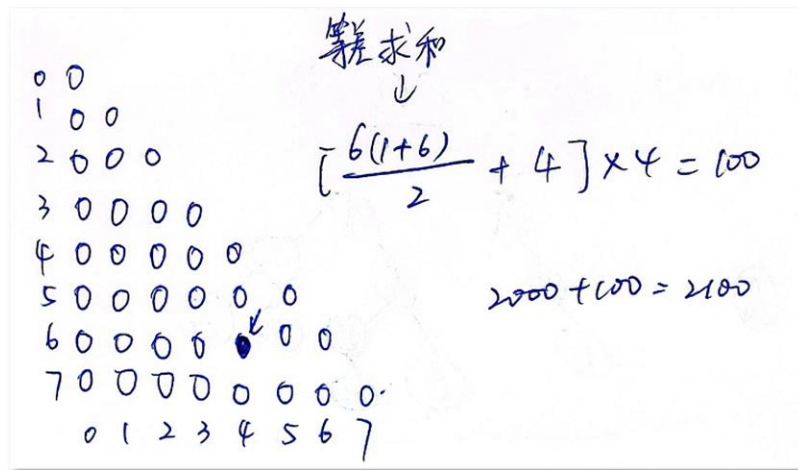 等差求和
↓
[6(1+6)/2 + 4] × 4 = 100
2000 + 100 = 2100
0 0
1 0 0
2 0 0 0
3 0 0 0 0
4 0 0 0 0 0
5 0 0 0 0 0 0
6 0 0 0 0 ● 0 0
7 0 0 0 0 0 0 0 0
0 1 2 3 4 5 6 7